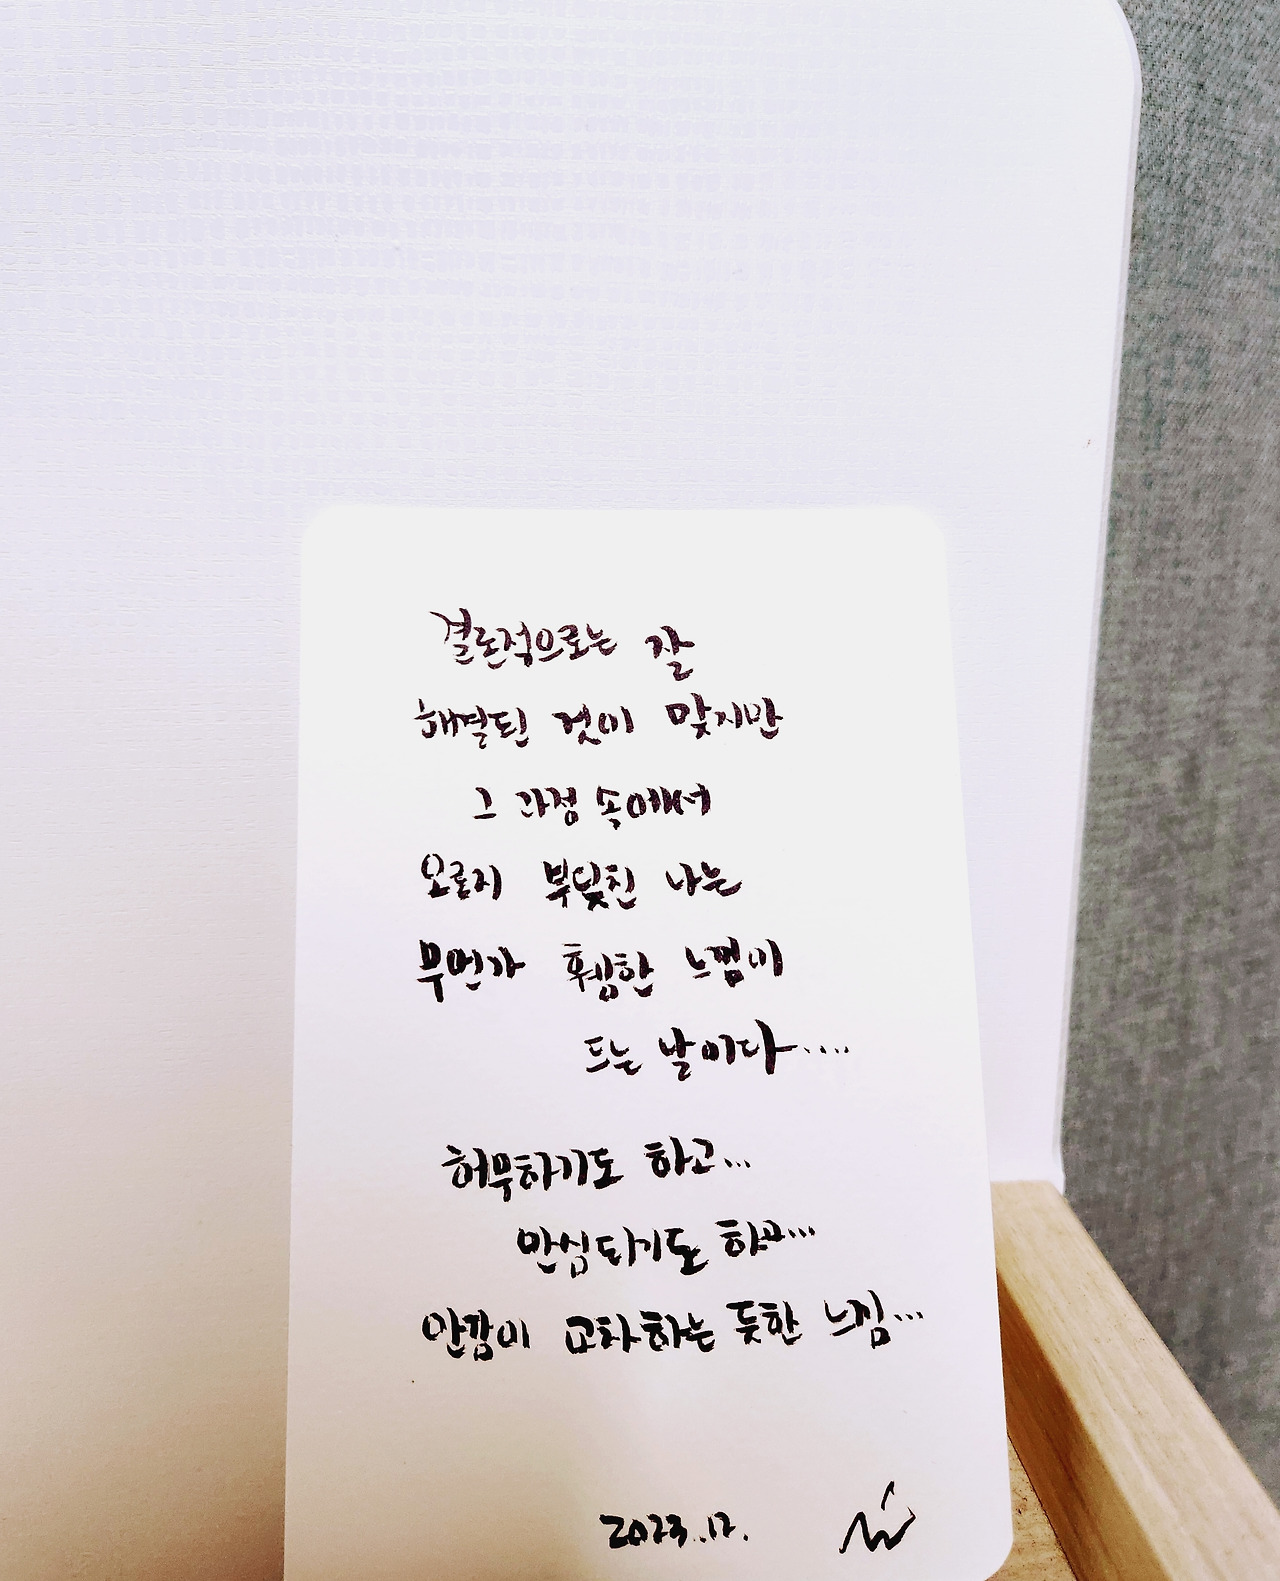 결론적으로는 잘
해결된 것이 맞지만
그 과정 속에서
오로지 부딪친 나는
무언가 휑한 느낌이
드는 날이다....
허무하기도 하고...
안심되기도 하고...
만감이 교차하는 듯한 느낌...
2023.12.